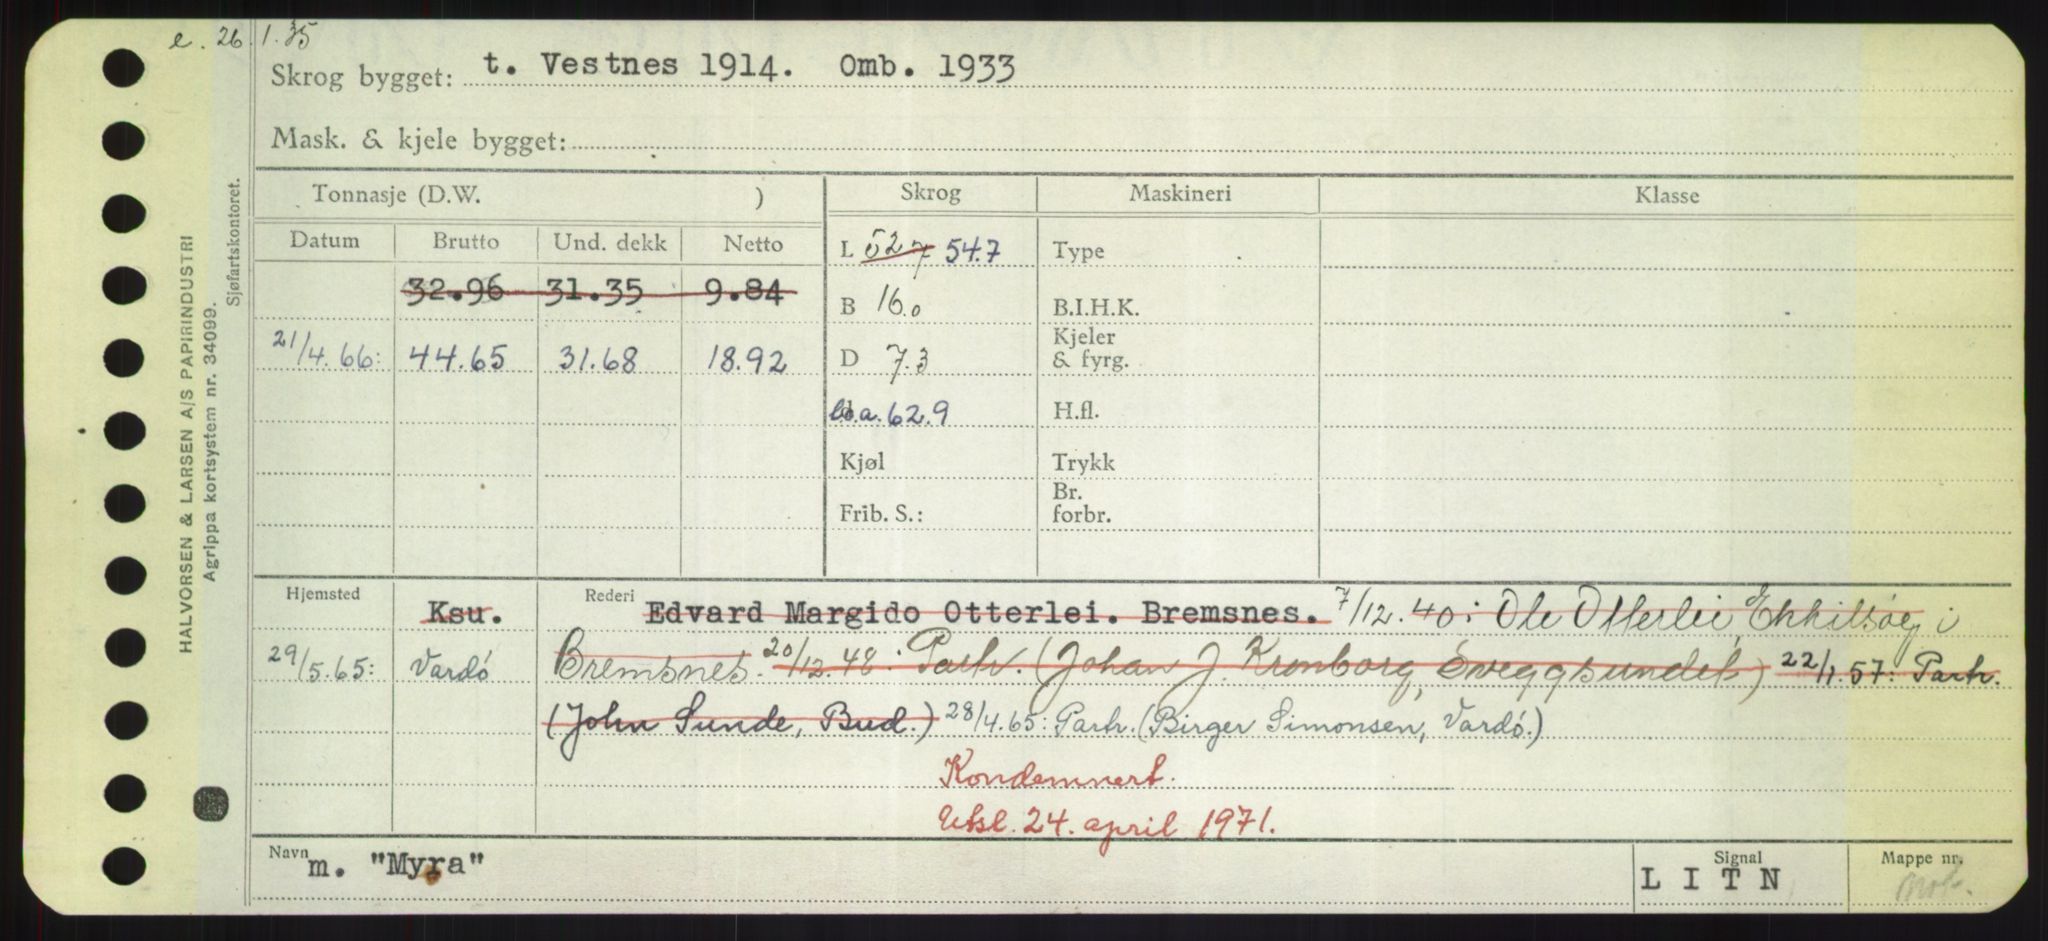 e. 26.1.35
Skrog bygget: t. Vestnes 1914. Omb. 1933
Mask. & kjele bygget:
Tonnasje (D.W. ) Skrog Maskineri Klasse
Datum Brutto Und. dekk Netto L 52.7 54.7 Type
32.96 31.35 9.84 B 16.0 B.I.H.K.
21/4.66: 44.65 31.68 18.92 D 7.3 Kjeler & fyrg.
l.o.a. 62.9 H.fl.
Kjøl Trykk
Frib. S.: Br. forbr.
Hjemsted Ksu. Rederi Edvard Margido Otterlei. Bremsnes. 7/12.40: Ole Otterlei Ekkilsøy i
29/5.65: Vardö Bremsnes. 20/12.48: Partr. (Johan J. Kronborg, Sveggsundet) 22/1.57: Partr.
(John Sunde, Bud.) 28/4.65: Partr. (Birger Simonsen, Vardö.)
Kondemnert.
Utsl. 24. april 1971.
Navn m. "Myra" Signal L I T N Mappe nr.
HALVORSEN & LARSEN A/S PAPIRINDUSTRI
Agrippa kortsystem nr. 34099.
Sjøfartskontoret.